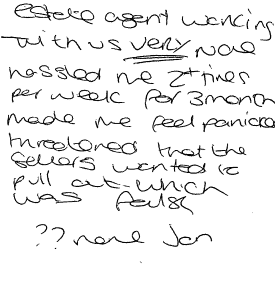 estate agent working
with us very rude
hassled me 2+ times
per week for 3 month
made me feel panicked
threatened that the
sellers wanted to
pull out - which
was false
??